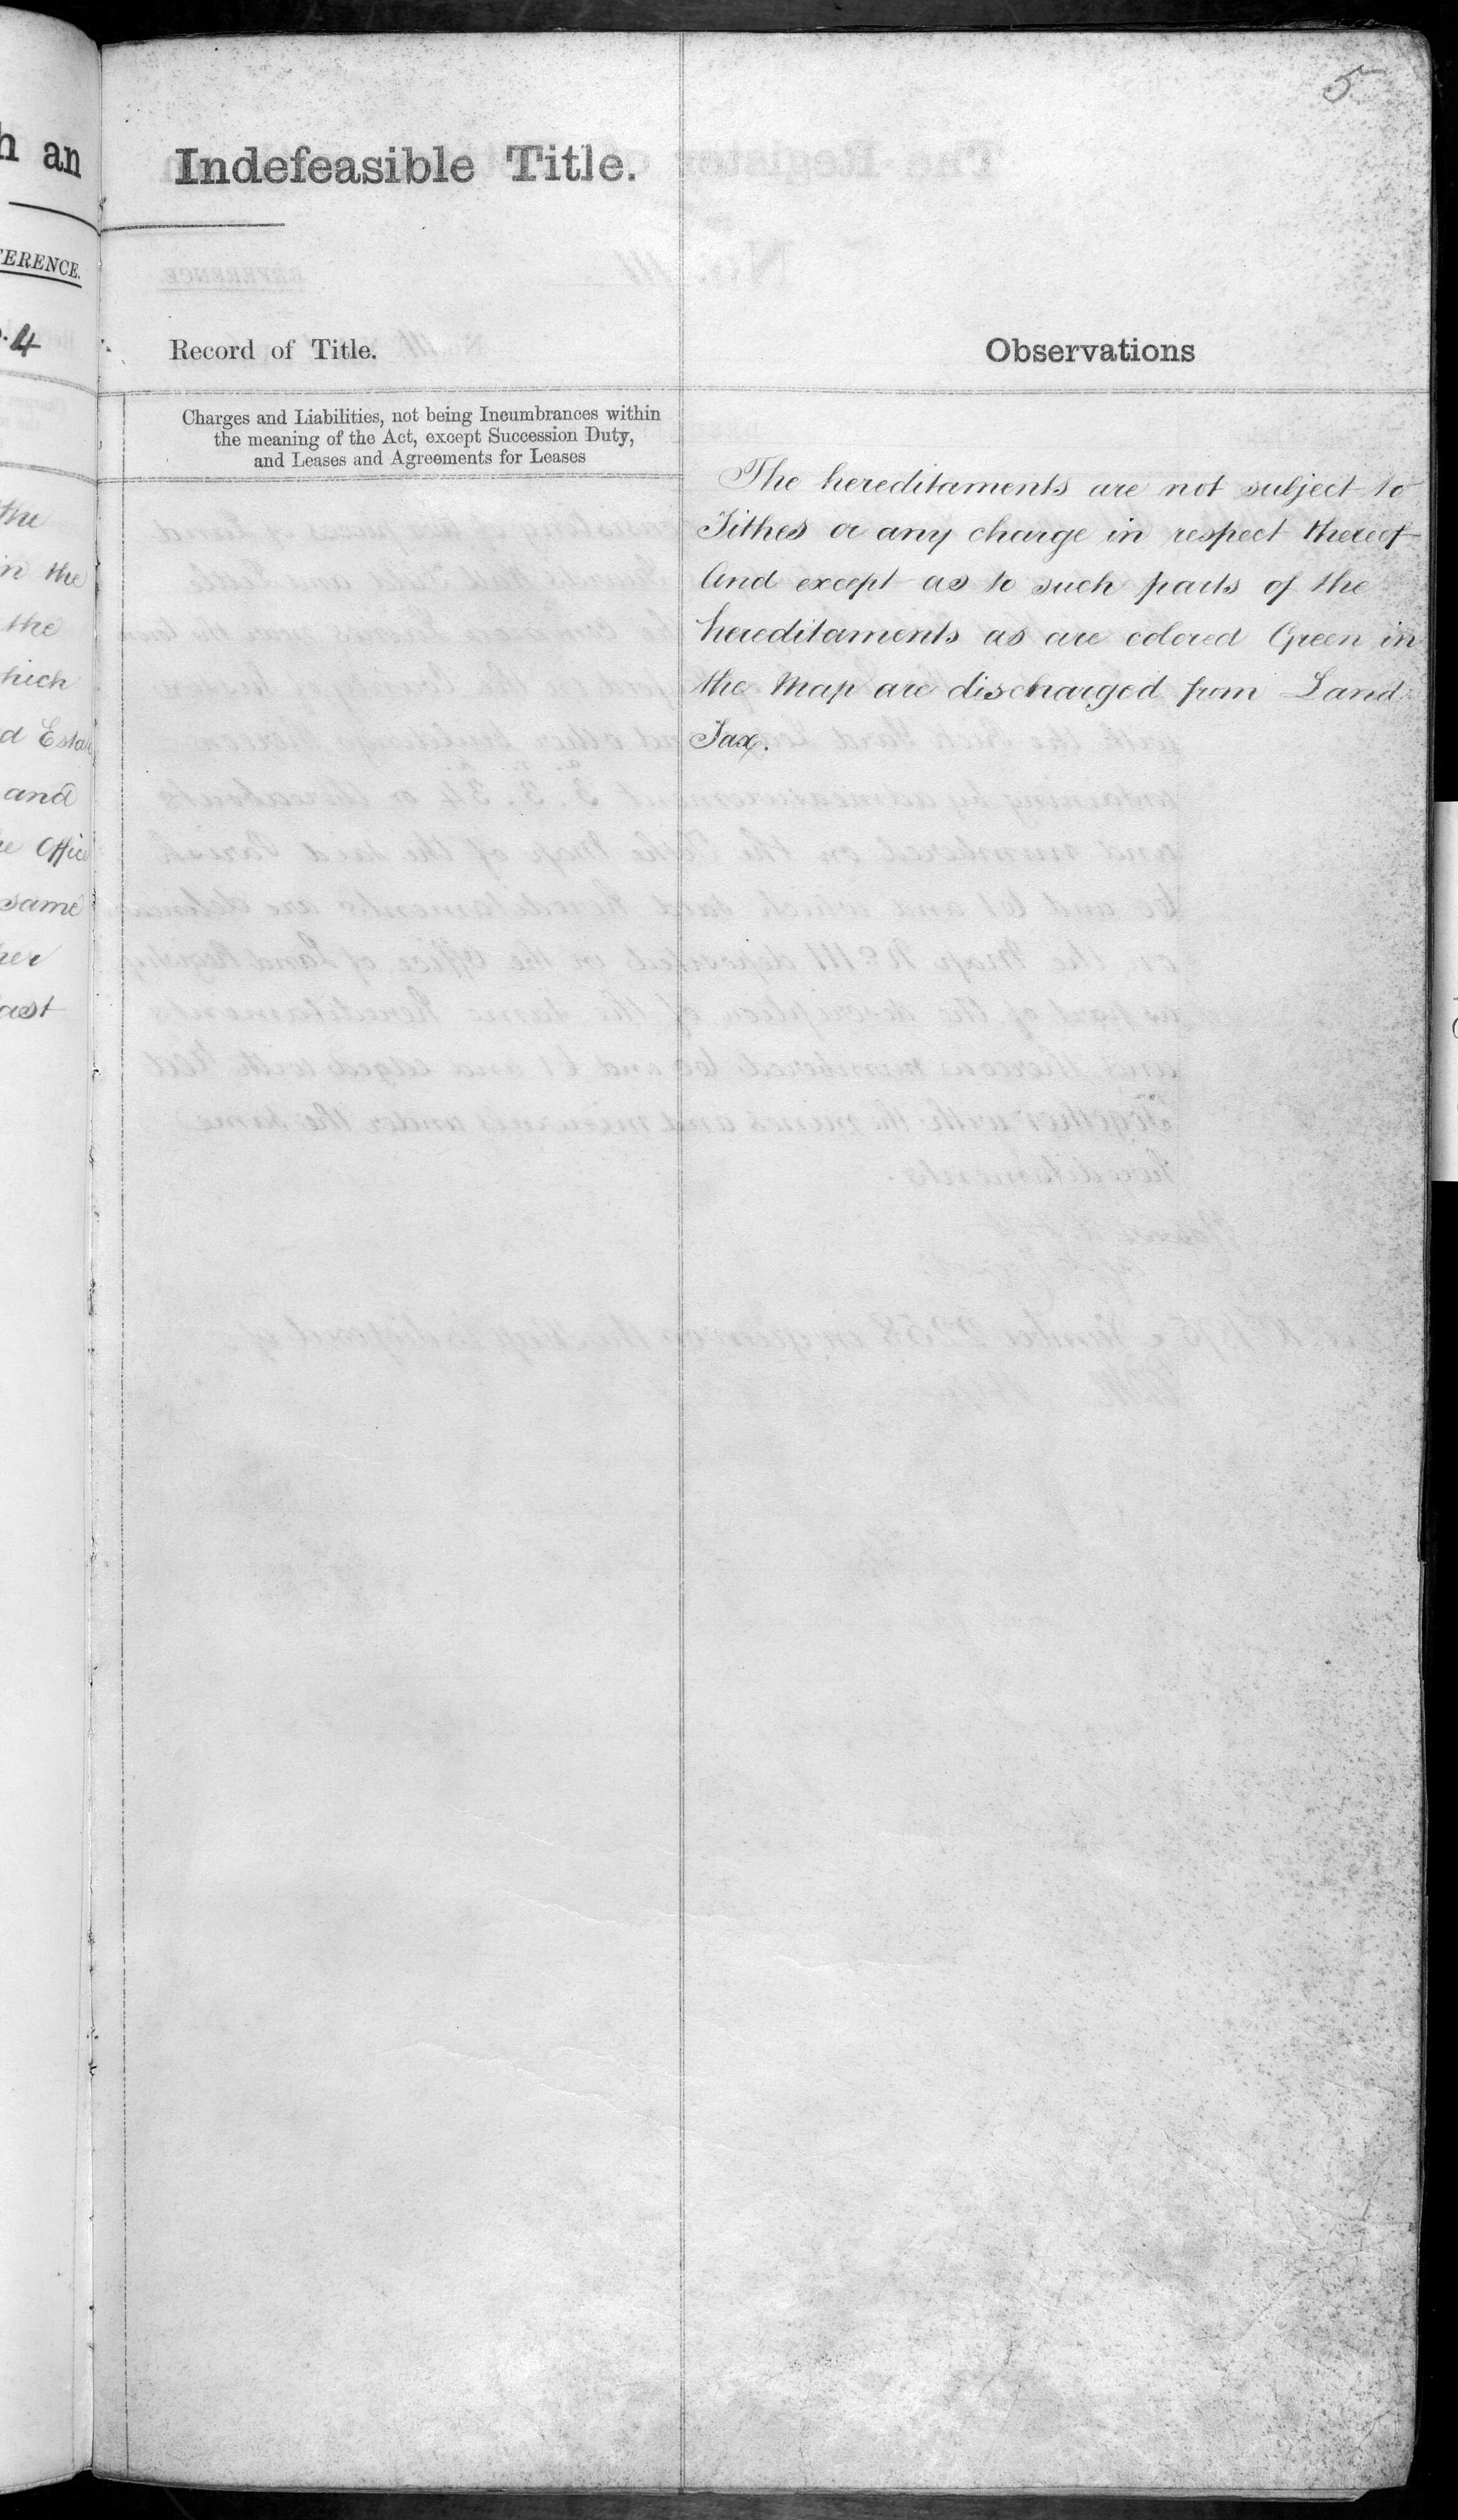 5
h an
ERENCE.
4
the
in the
the
hich
d Estate
and
Office
same
her
ast
Indefeasible Title.
Record of Title.
Charges and Liabilities, not being Incumbrances within
the meaning of the Act, except Succession Duty,
and Leases and Agreements for Leases
Observations
The hereditaments are not subject to
Tithes or any charge in respect thereof
And except as to such parts of the
hereditaments as are colored Green in
the Map are discharged from Land
Tax.